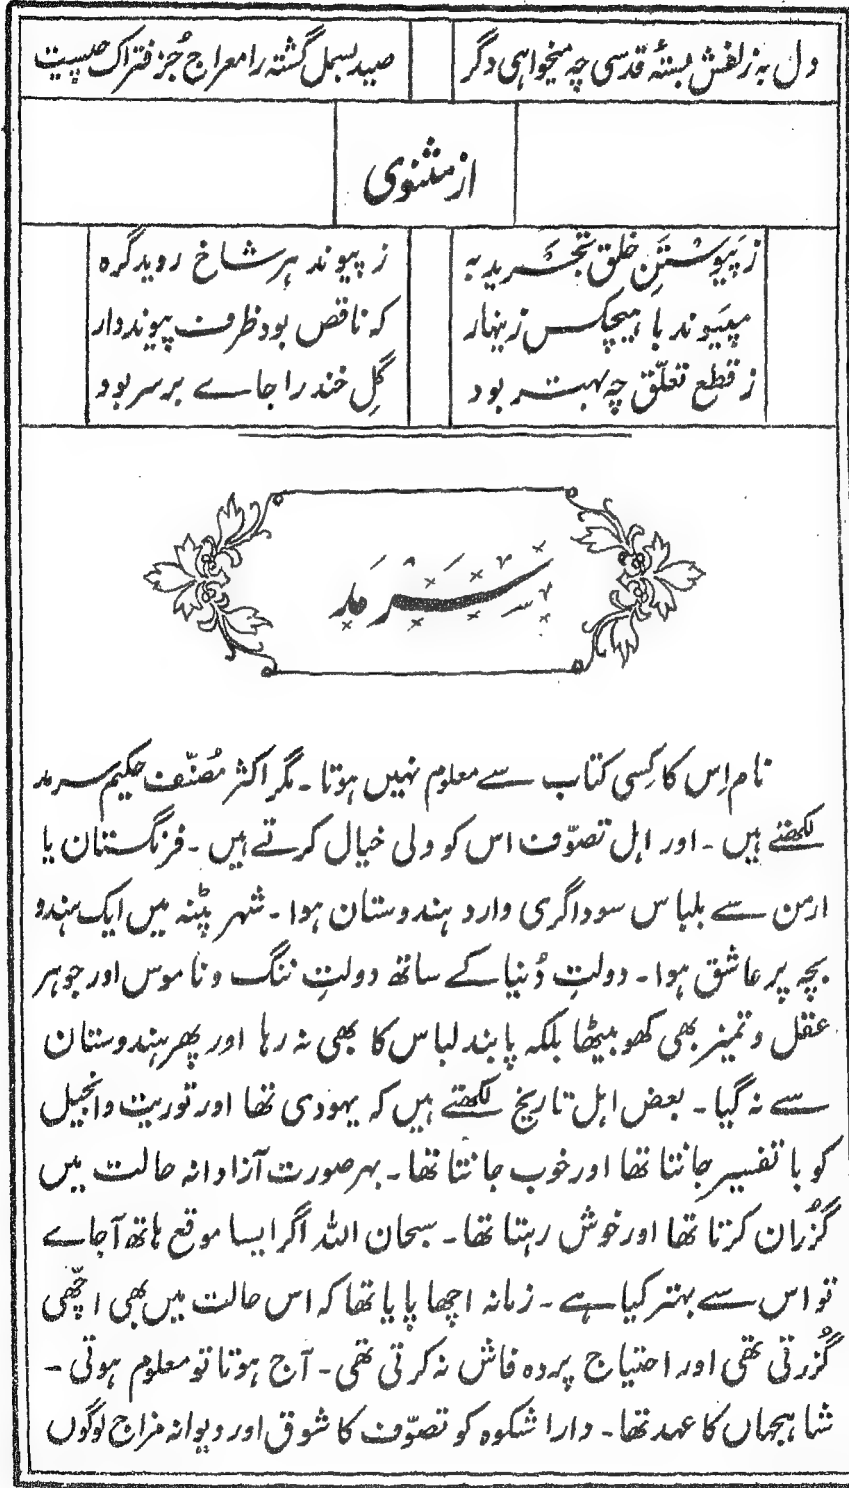 دل به زلفش بستۂ قدسی چه میخواہی دگر
صید بسمل گشته را معراج جُز فتراک چیست
از مثنوی
ز پَیوستنِ خلق تجرید به
ز پیوند ہر شاخ روید گره
مپَیوند با ہیچکس زینہار
که ناقص بود ظرف پیوند دار
ز قطع تعلّق چه بہتر بود
گلِ خند را جاے بر سر بود
سَرمَد
نام اِس کا کِسی کتاب سے معلوم نہیں ہوتا ۔ مگر اکثر مُصنّف حکیم سرمد
لکھتے ہیں ۔ اور اہل تصوّف اس کو ولی خیال کرتے ہیں ۔ فرنگستان یا
ارمن سے بلباس سوداگری وارد ہندوستان ہوا ۔ شہر پٹنہ میں ایک ہندو
بچہ پر عاشق ہوا ۔ دولتِ دُنیا کے ساتھ دولتِ ننگ و ناموس اور جوہر
عقل و تمیز بھی کھو بیٹھا بلکہ پابند لباس کا بھی نہ رہا اور پھر ہندوستان
سے نہ گیا ۔ بعض اہل تاریخ لکھتے ہیں کہ یہودی تھا اور توریت و انجیل
کو با تفسیر جانتا تھا اور خوب جانتا تھا ۔ بہر صورت آزادانہ حالت میں
گُزران کرتا تھا اور خوش رہتا تھا ۔ سبحان اللہ اگر ایسا موقع ہاتھ آجاے
تو اس سے بہتر کیا ہے ۔ زمانہ اچھا پایا تھا کہ اس حالت میں بھی اچّھی
گُزرتی تھی اور احتیاج پردہ فاش نہ کرتی تھی ۔ آج ہوتا تو معلوم ہوتی ۔
شاہجہاں کا عہد تھا ۔ دارا شکوہ کو تصوّف کا شوق اور دیوانہ مزاج لوگوں